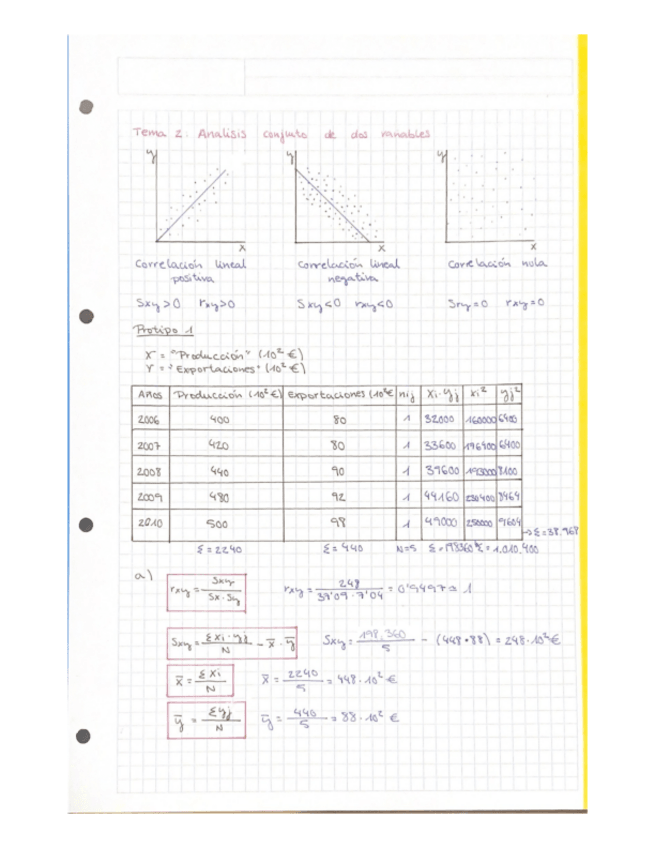 Tema 2: Analisis conjunto de dos variables
y y y
x x x
Correlación lineal positiva
Correlación lineal negativa
Correlación nula
Sxy>0 rxy>0
Sxy<0 rxy<0
Sxy=0 rxy=0
Protipo 1
X = "Producción" (10² €)
Y = "Exportaciones" (10² €)
Años Producción (10² €) Exportaciones (10² € nij Xi·Yj xi² yj²
2006 400 80 1 32000 160000 6400
2007 420 80 1 33600 176400 6400
2008 440 90 1 39600 8100
2009 480 92 1 44160 230400 8464
2010 500 98 1 49000 250000 9604
→ Σ=38.968
Σ=2240 Σ=440 N=5 Σ=198360 Σ=1.010.400
a) rxy = Sxy / Sx·Sy rxy = 248 / 37'09·7'04 = 0'9497 ≃ 1
Sxy = Σxi·yj / N - x̄·ȳ Sxy = 198.360 / 5 - (448·88) = 248·10² €
x̄ = Σxi / N x̄ = 2240 / 5 = 448·10² €
ȳ = Σyj / N ȳ = 440 / 5 = 88·10² €